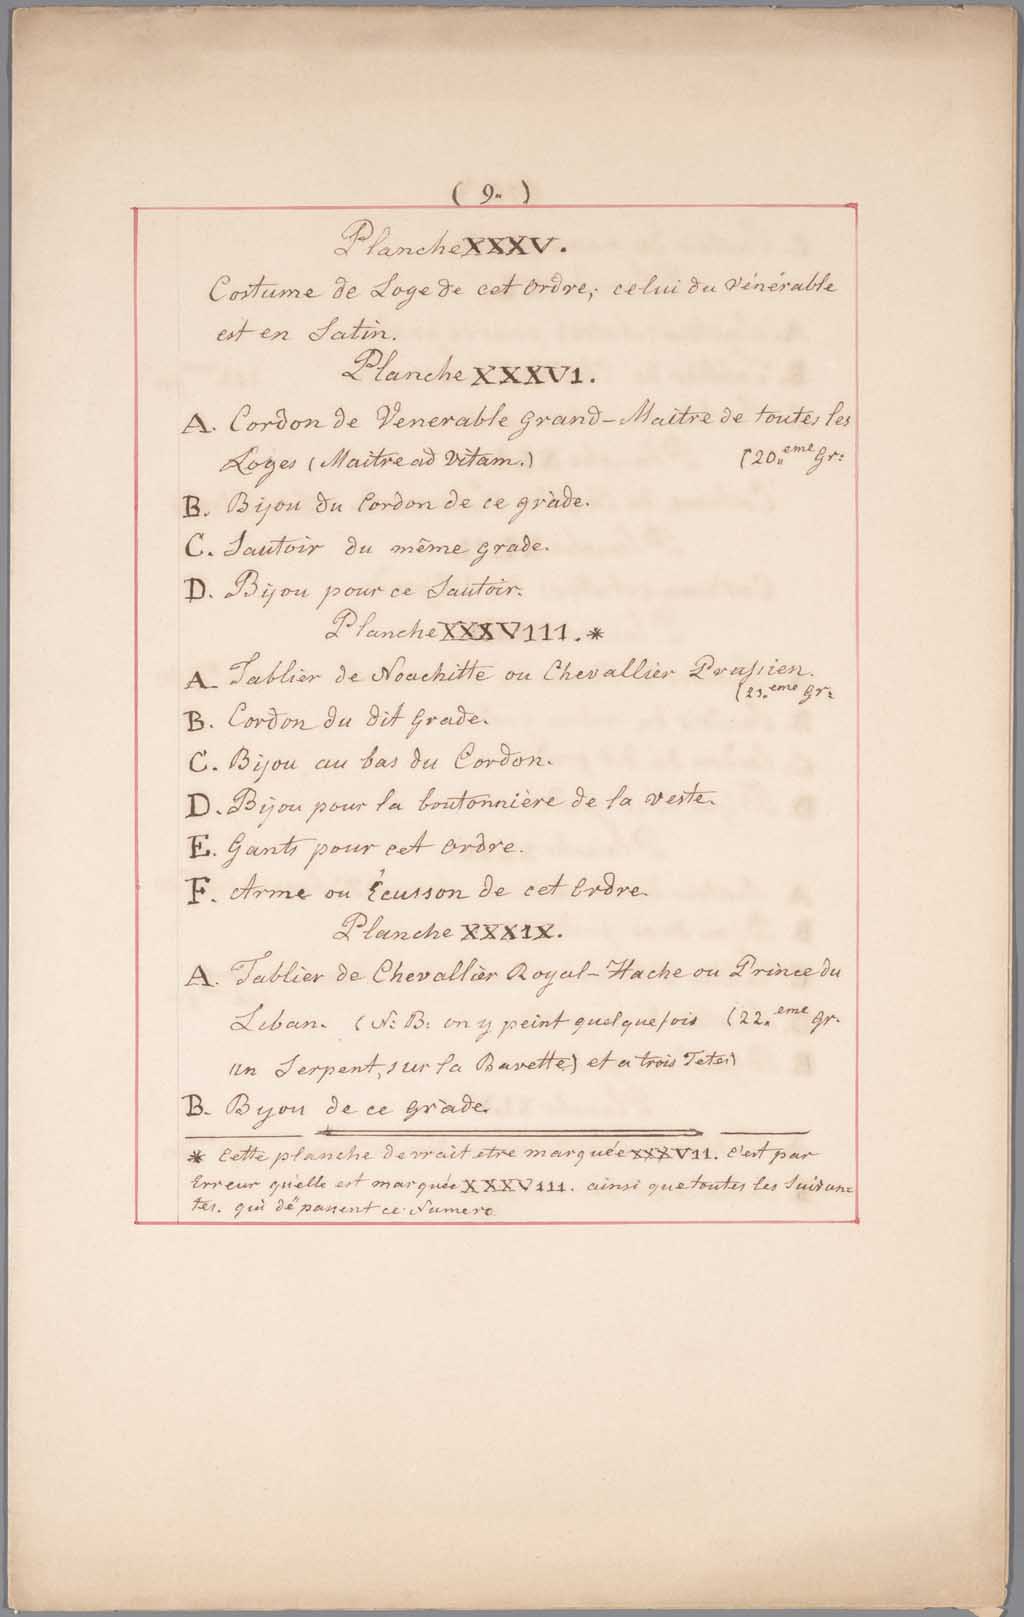 ( 9. )
Planche XXXV.
Costume de Loge de cet Ordre; celui du Vénérable
est en Satin.
Planche XXXVI.
A. Cordon de Venerable Grand-Maitre de toutes les
Loges (Maitre ad Vitam.) (20.eme Gr:
B. Bijou du Cordon de ce gràde.
C. Sautoir du même grade.
D. Bijou pour ce Sautoir.
Planche XXXVIII. *
A Tablier de Noachitte ou Chevallier Prussien.
(21.eme Gr:
B. Cordon du dit Grade.
C. Bijou au bas du Cordon.
D. Bijou pour la boutonnière de la veste.
E. Gants pour cet Ordre.
F. Arme ou Écusson de cet Ordre.
Planche XXXIX.
A. Tablier de Chevallièr Royal-Hache ou Prince du
Liban. (N: B: on y peint quelquefois (22.eme Gr.
un Serpent, sur la Bavette) et a trois Tetes)
B. Byou de ce Gràde.
* Cette planche devrait etre marquée XXXVII. C'est par
Erreur qu'elle est marquée XXXVIII. ainsi que toutes les Suivan=
tes. qui dépassent ce Numero